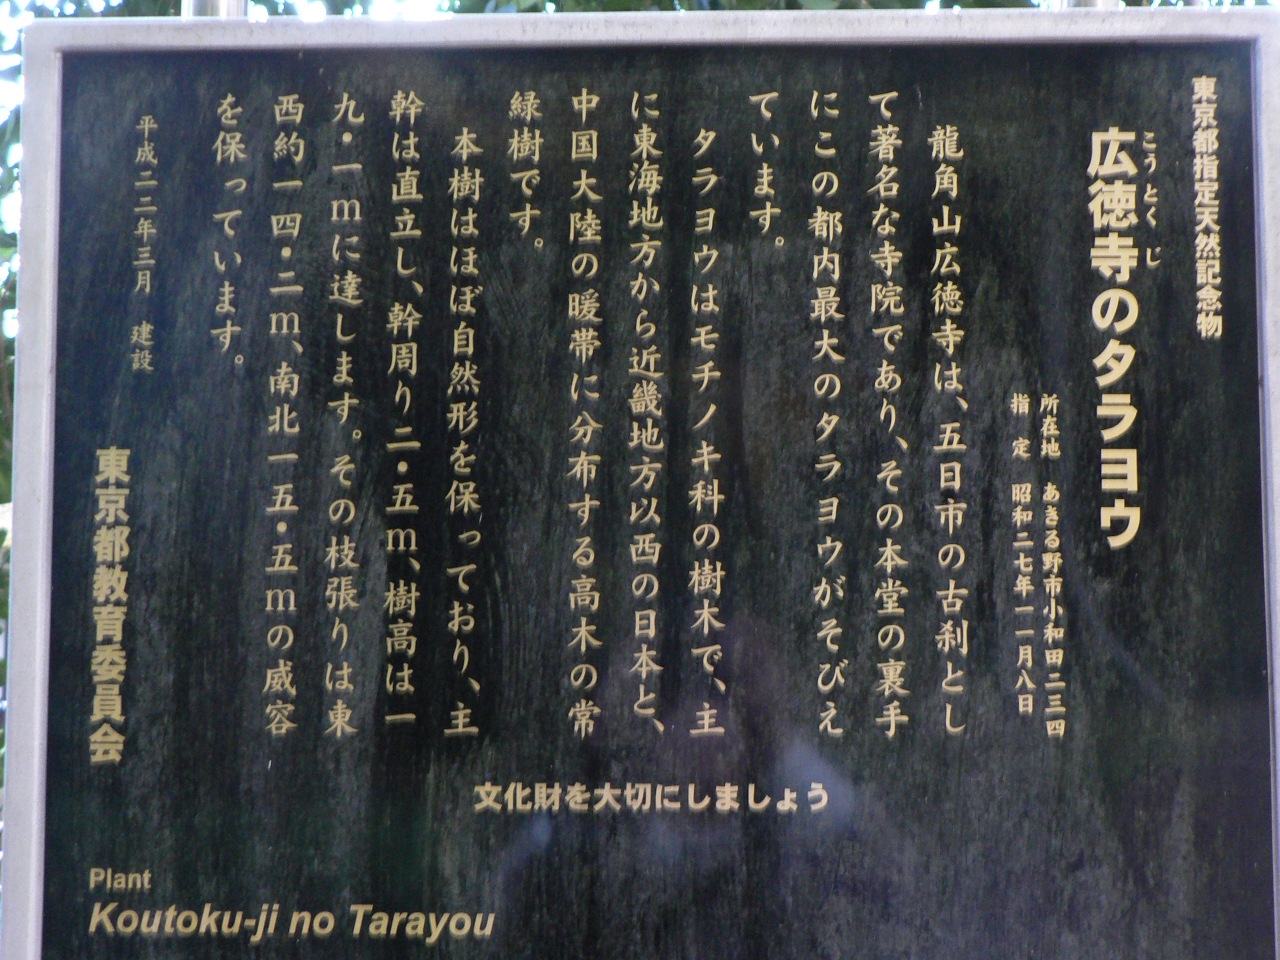 東京都指定天然記念物
こうとくじ
広徳寺のタラヨウ
所在地 あきる野市小和田二三四
指定 昭和二七年一一月八日
龍角山広徳寺は、五日市の古刹とし
て著名な寺院であり、その本堂の裏手
にこの都内最大のタラヨウがそびえ
ています。
タラヨウはモチノキ科の樹木で、主
に東海地方から近畿地方以西の日本と、
中国大陸の暖帯に分布する高木の常
緑樹です。
本樹はほぼ自然形を保っており、主
幹は直立し、幹周り二・五m、樹高は一
九・一mに達します。その枝張りは東
西約一四・二m、南北一五・五mの威容
を保っています。
平成二二年三月 建設
東京都教育委員会
文化財を大切にしましょう
Plant
Koutoku-ji no Tarayou